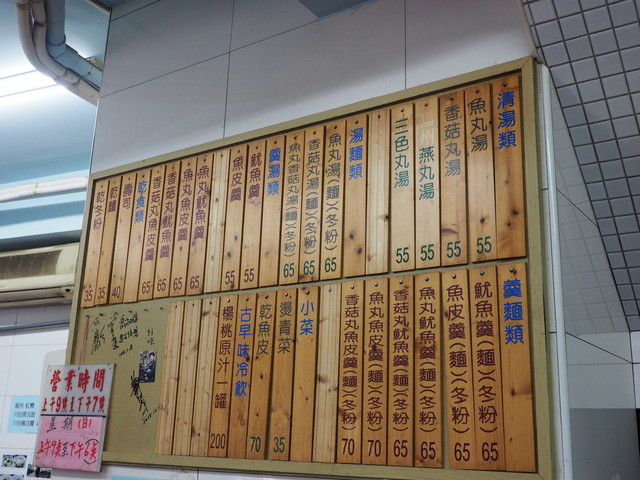 清湯類
魚丸湯 55
香菇丸湯 55
燕丸湯 55
三色丸湯 55
湯麵類
魚丸湯(麵)(冬粉) 65
香菇丸湯(麵)(冬粉) 65
魚丸香菇丸湯(麵)(冬粉) 65
羹湯類
魷魚羹 55
魚皮羹 55
魚丸魷魚羹 65
魚丸魚皮羹 65
香菇丸魷魚羹 65
香菇丸魚皮羹 65
乾食類
壽司 40
乾麵 35
乾冬粉 35
羹麵類
魷魚羹(麵)(冬粉) 65
魚皮羹(麵)(冬粉) 65
魚丸魷魚羹(麵)(冬粉) 65
香菇丸魷魚羹(麵)(冬粉) 65
魚丸魚皮羹(麵)(冬粉) 70
香菇丸魚皮羹(麵)(冬粉) 70
小菜
燙青菜 35
乾魚皮 70
古早味冷飲
楊桃原汁一罐 200
營業時間
上午9點至下午7點
星期(日)
上午9點至下午6點